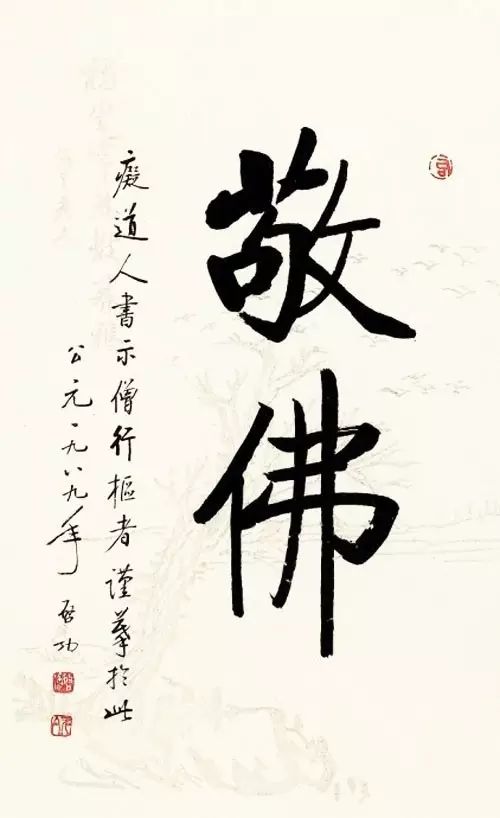 敬佛
癡道人書示僧行樞者謹摹於此
公元一九八九年 啓功